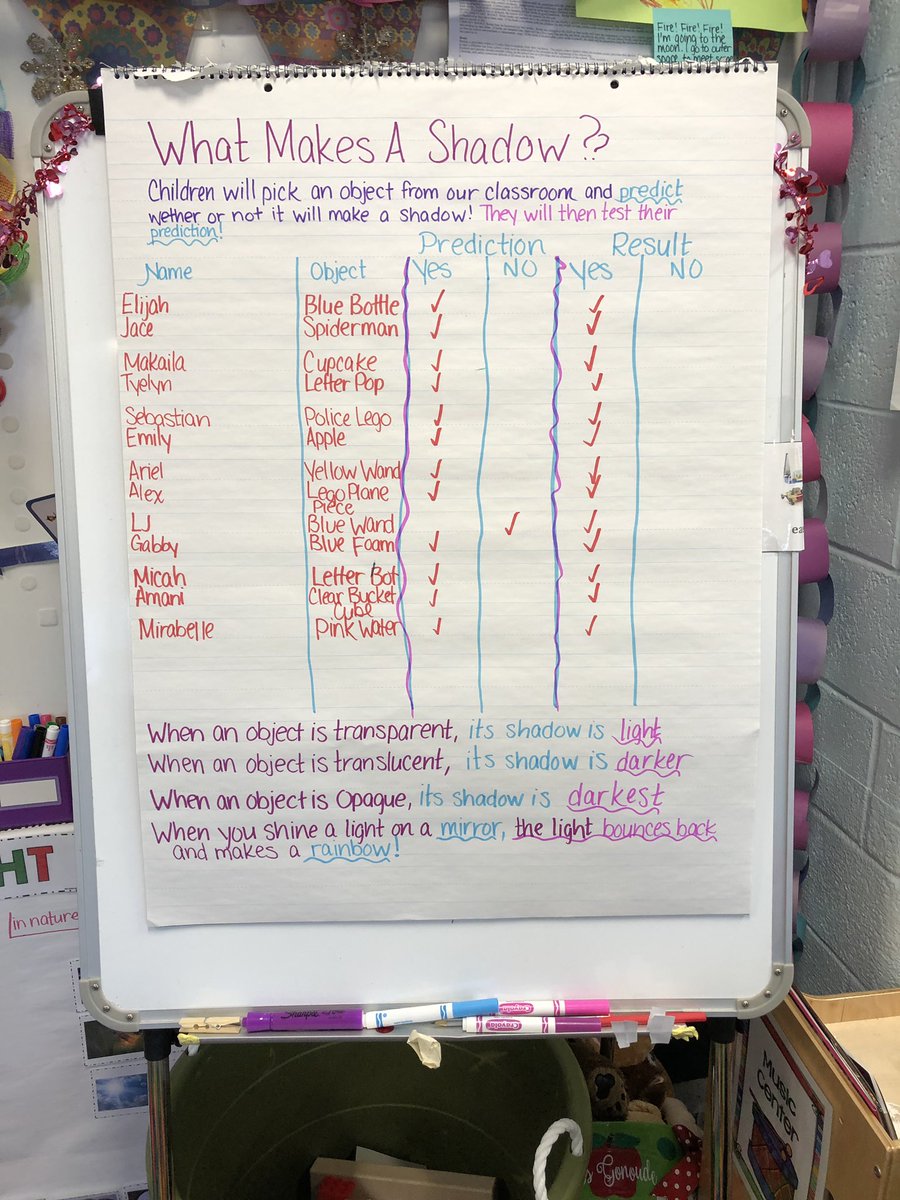 Fire! Fire! Fire!
I'm going to the
moon. I go to outer
space to meet
What Makes A Shadow??
Children will pick an object from our classroom and predict
wether or not it will make a shadow! They will then test their
prediction!
Prediction Result
Name Object Yes NO Yes NO
Elijah Blue Bottle ✓ ✓
Jace Spiderman ✓ ✓
Makaila Cupcake ✓ ✓
Tyelyn Letter Pop ✓ ✓
Sebastian Police Lego ✓ ✓
Emily Apple ✓ ✓
Ariel Yellow Wand ✓ ✓
Alex Lego Plane ✓ ✓
Piece
LJ Blue Wand ✓ ✓
Gabby Blue Foam ✓ ✓
Micah Letter Bot ✓ ✓
Amani Clear Bucket ✓ ✓
Cube
Mirabelle Pink Water ✓ ✓
When an object is transparent, its shadow is light
When an object is translucent, its shadow is darker
When an object is Opaque, its shadow is darkest
When you shine a light on a mirror, the light bounces back
and makes a rainbow!
HT
in nature
Sharpie
Crayola
Crayola
Music
Center
Gonoude